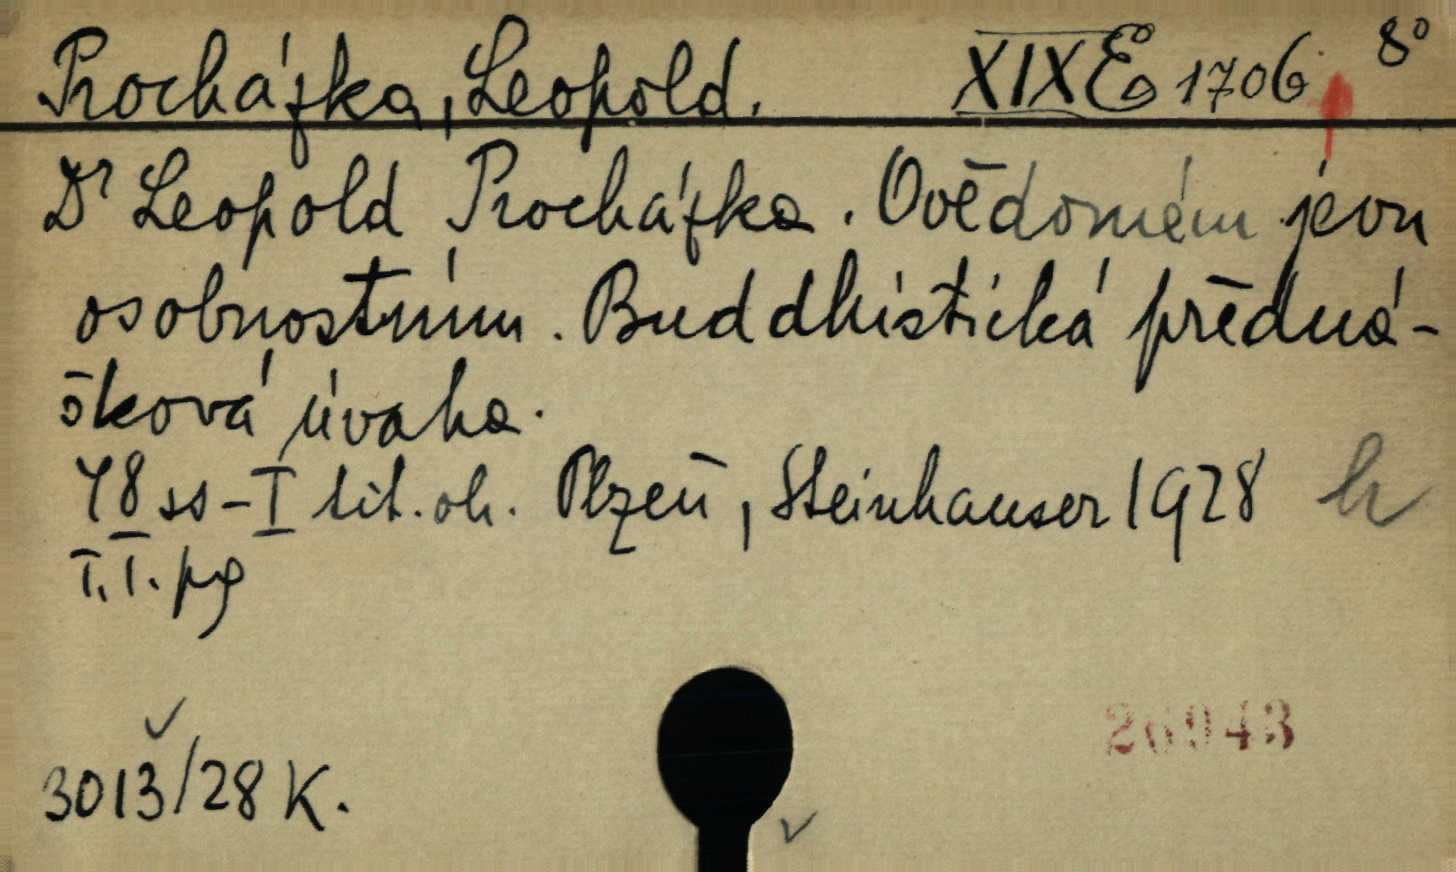 Procházka, Leopold. XIX E 1706 8°
Dr Leopold Procházka. O vědomém jevu
osobnostním. Buddhistická předná-
šková úvaha.
48 ss - I tit. ob. Plzeň, Steinhauser 1928
I. I. pg
26943
3013/28 K.